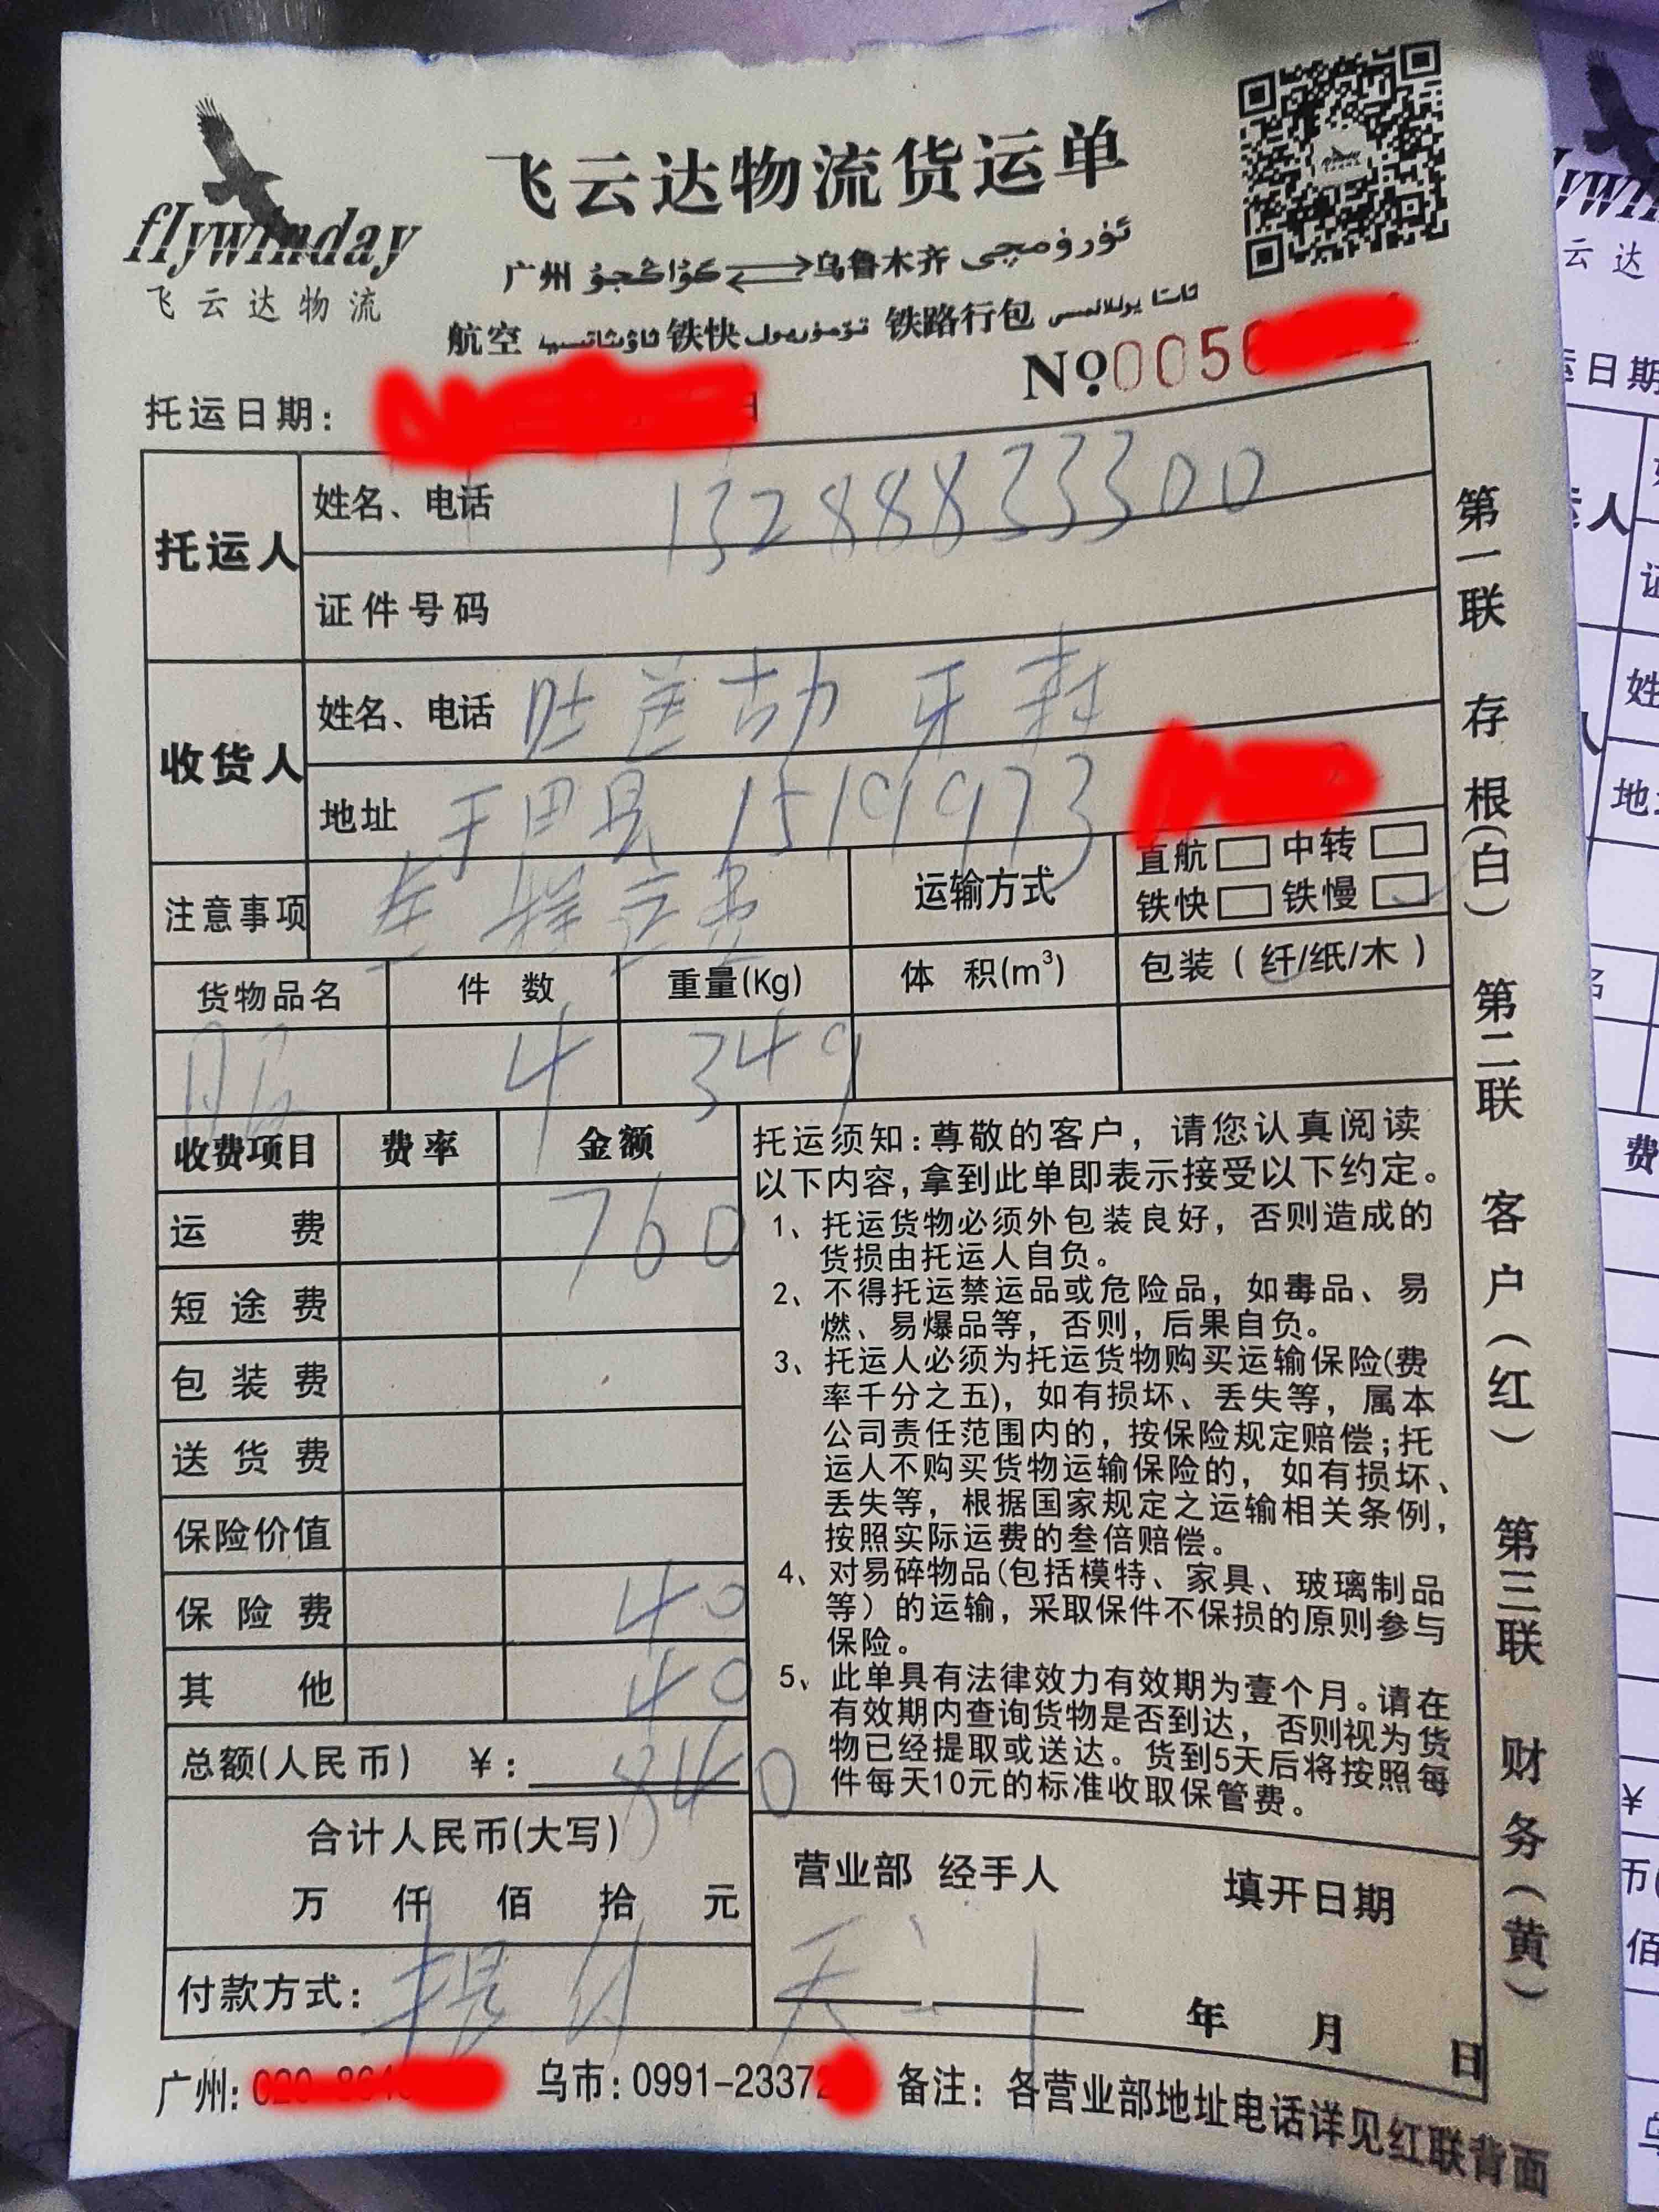 flywinday
飞云达物流
飞云达物流货运单
广州 گۇاڭجۇ 乌鲁木齐 ئۈرۈمچى
航空 铁快 铁路行包
№0056
托运日期:
托运人
姓名、电话 13288833300
证件号码
收货人
姓名、电话
地址 于田县 1519973
注意事项
运输方式
直航 中转
铁快 铁慢
货物品名 件数 重量(Kg) 体积(m³) 包装(纤/纸/木)
4 349
收费项目 费率 金额
运费 760
短途费
包装费
送货费
保险价值
保险费 40
其他 40
总额(人民币) ¥: 840
合计人民币(大写)
万 仟 佰 拾 元
付款方式: 提付
托运须知:尊敬的客户,请您认真阅读
以下内容,拿到此单即表示接受以下约定。
1、托运货物必须外包装良好,否则造成的
货损由托运人自负。
2、不得托运禁运品或危险品,如毒品、易
燃、易爆品等,否则,后果自负。
3、托运人必须为托运货物购买运输保险(费
率千分之五),如有损坏、丢失等,属本
公司责任范围内的,按保险规定赔偿;托
运人不购买货物运输保险的,如有损坏、
丢失等,根据国家规定之运输相关条例,
按照实际运费的叁倍赔偿。
4、对易碎物品(包括模特、家具、玻璃制品
等)的运输,采取保件不保损的原则参与
保险。
5、此单具有法律效力有效期为壹个月。请在
有效期内查询货物是否到达,否则视为货
物已经提取或送达。货到5天后将按照每
件每天10元的标准收取保管费。
营业部 经手人 填开日期
年 月 日
广州: 乌市:0991-2337 备注:各营业部地址电话详见红联背面
第一联 存根(白) 第二联 客户(红) 第三联 财务(黄)